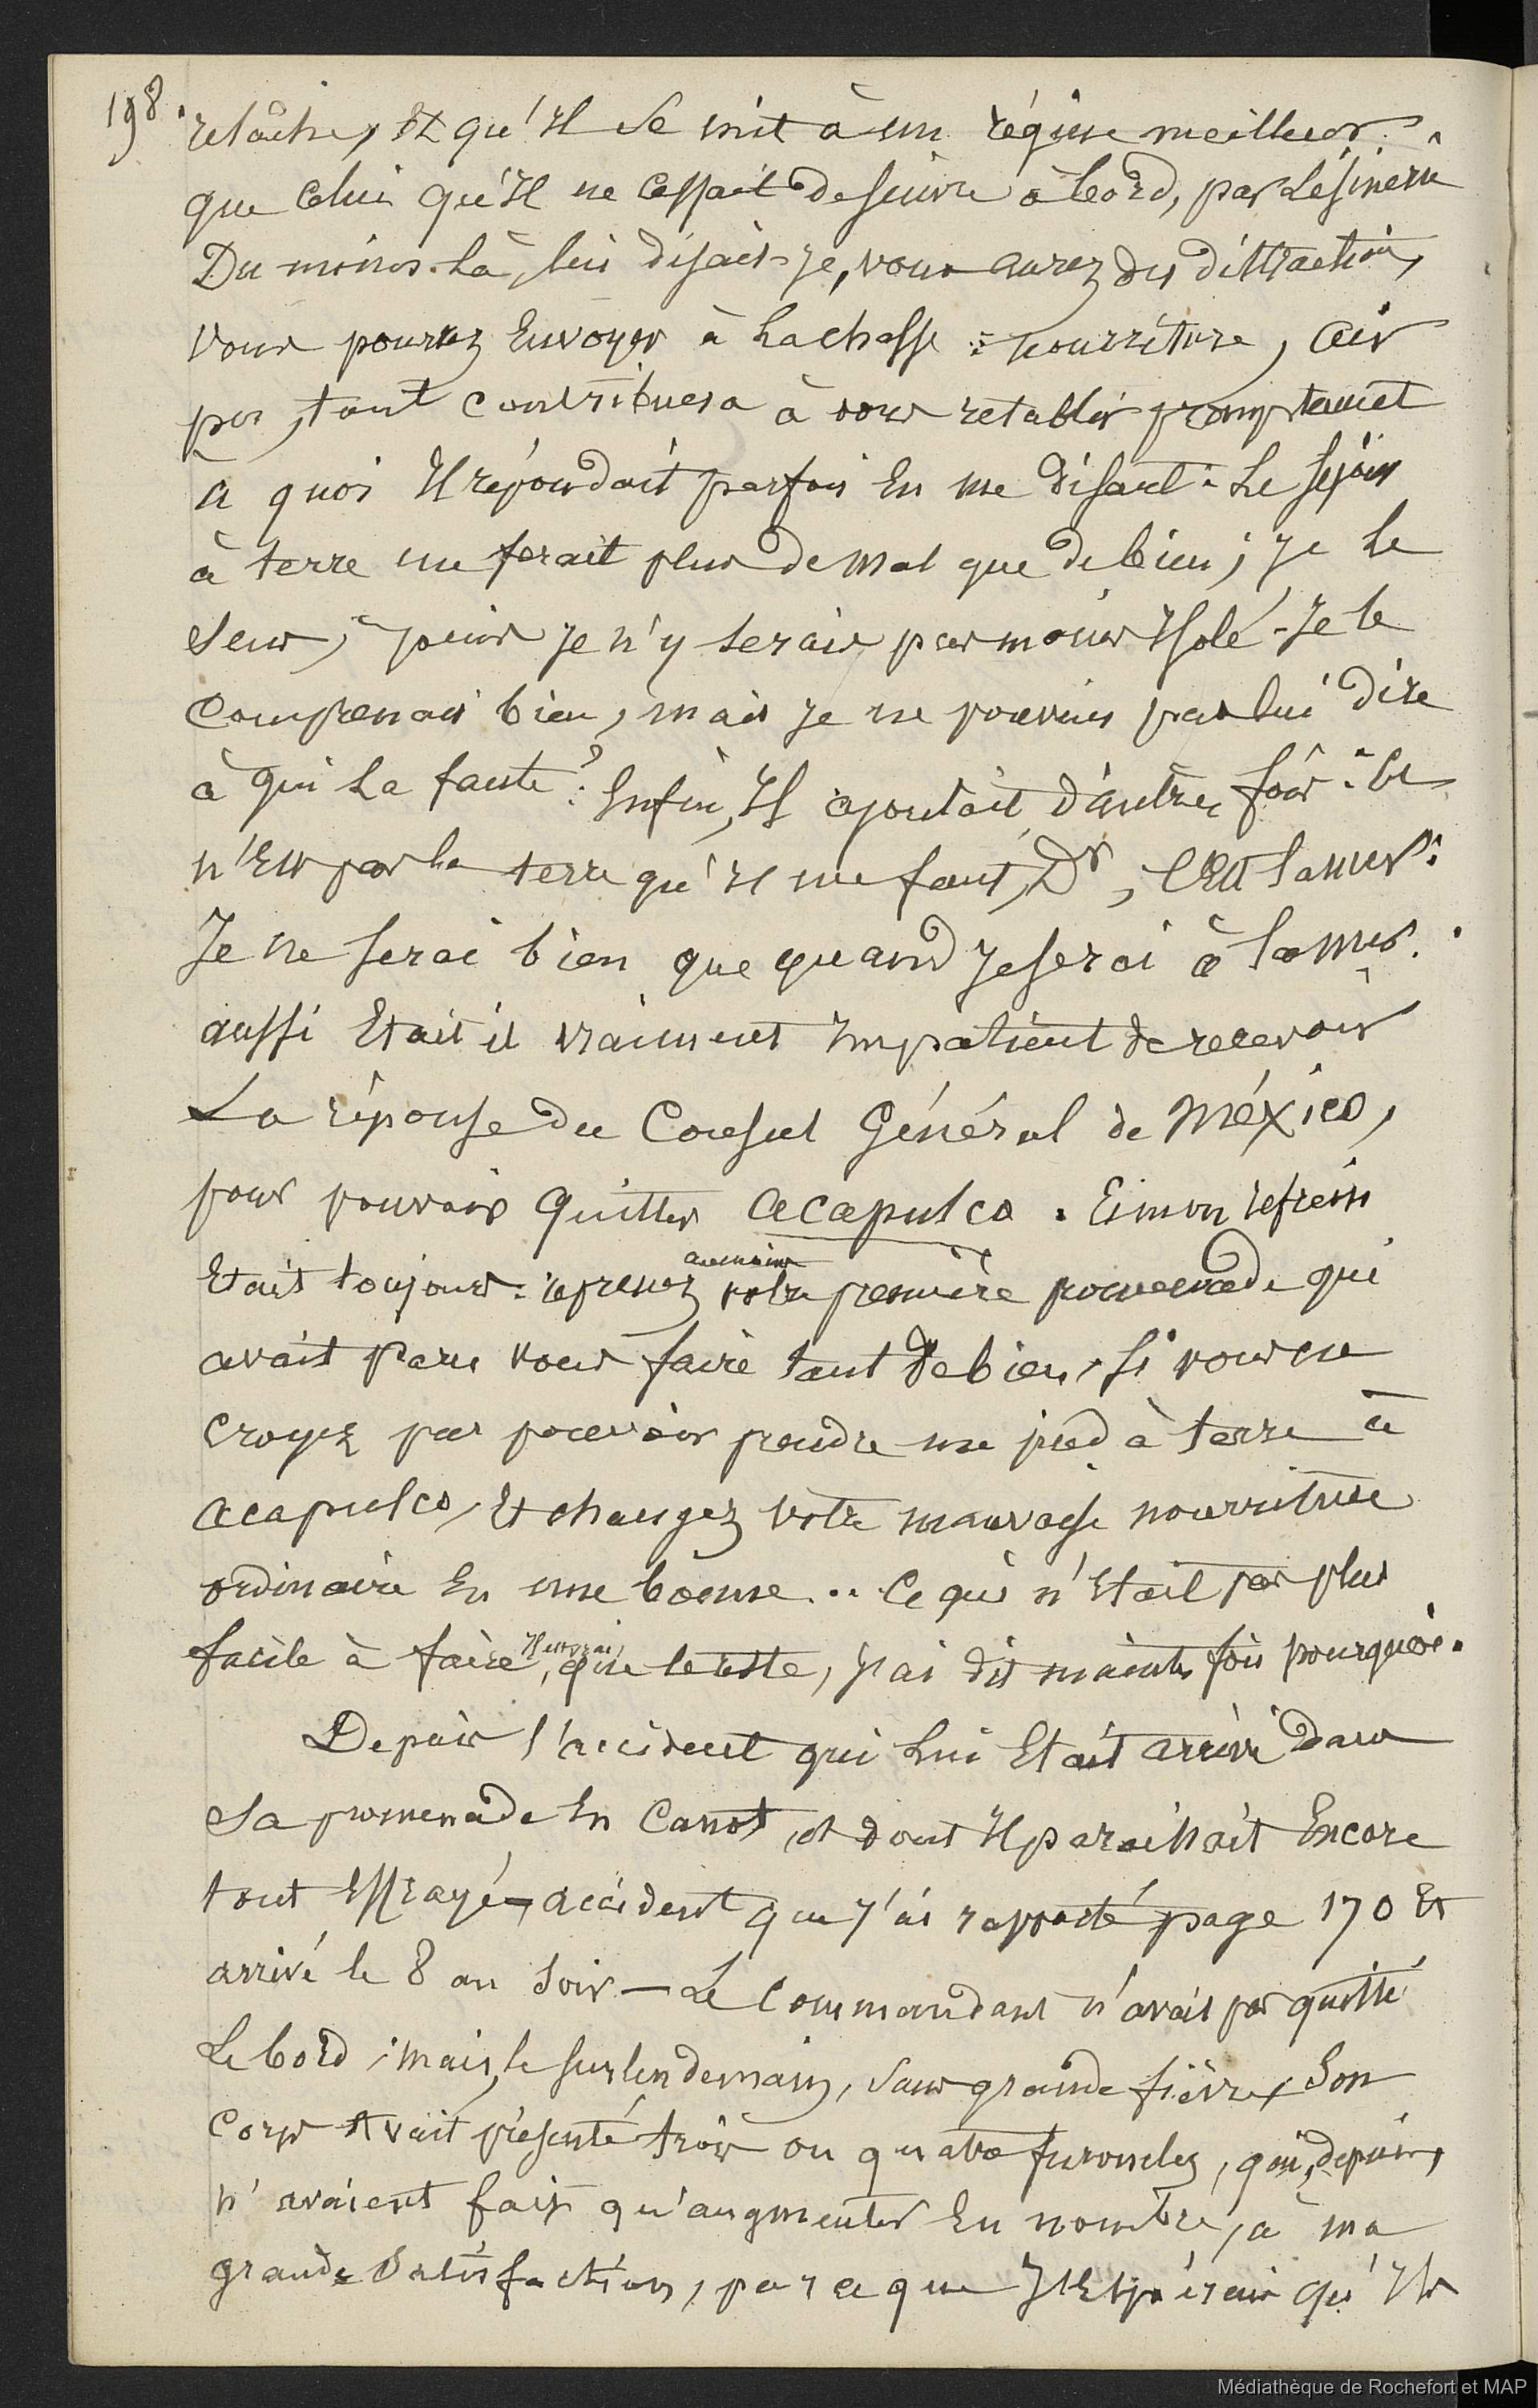 198.
relâche, Et qu'Il se mit à un régime meilleur
que celui qu'Il ne cessait de suivre à bord, par Lésinerie
Du moins là, lui disais-je, vous aurez des distractions,
vous pourrez Envoyer à la chasse : nourriture, air
pur, tout contribuera à vous retablir promptement
a quoi Il répondait parfois En me disant : Le séjour
à terre me ferait plus de mal que de bien ; je le
sens, puis je n'y serais pas moins Isolé - Je le
comprenais bien, mais je ne pouvais pas lui dire
à qui la faute ? Enfin, Il ajoutait d'autres fois : Ce
n'Est pas la terre qu'Il me faut, Dr, c'Est la mer :
Je ne serai bien que quand je serai à la mer.
aussi Etait il vraiment Impatient de recevoir
La réponse du Consul Général de México,
pour pouvoir quitter Acapulco. Et mon refrain
Etait toujours : reprenez au moins votre première promenade qui
avait paru vous faire tant de bien, si vous ne
croyez pas pouvoir prendre un pied à terre à
Acapulco, Et changez votre mauvaise nourriture
ordinaire En une bonne .. Ce qui n'Etait pas plus
facile à faire, Il est vrai, que le reste, j'ai dit maintes fois pourquoi.
Depuis l'accident qui lui Etait arrivé dans
sa promenade En Canot, et dont Il paraissait Encore
tout Effrayé, accident que j'ai rapporté page 170 Et
arrivé le 8 au soir — Le Commandant n'avait pas quitté
Le bord ; mais, le surlendemain, sans grande fièvre, son
corps Avait présenté trois ou quatre furoncles, qui, depuis,
n'avaient fait qu'augmenter En nombre, à ma
grande satisfaction, parce que J'Espérais qu'Ils
Médiathèque de Rochefort et MAP